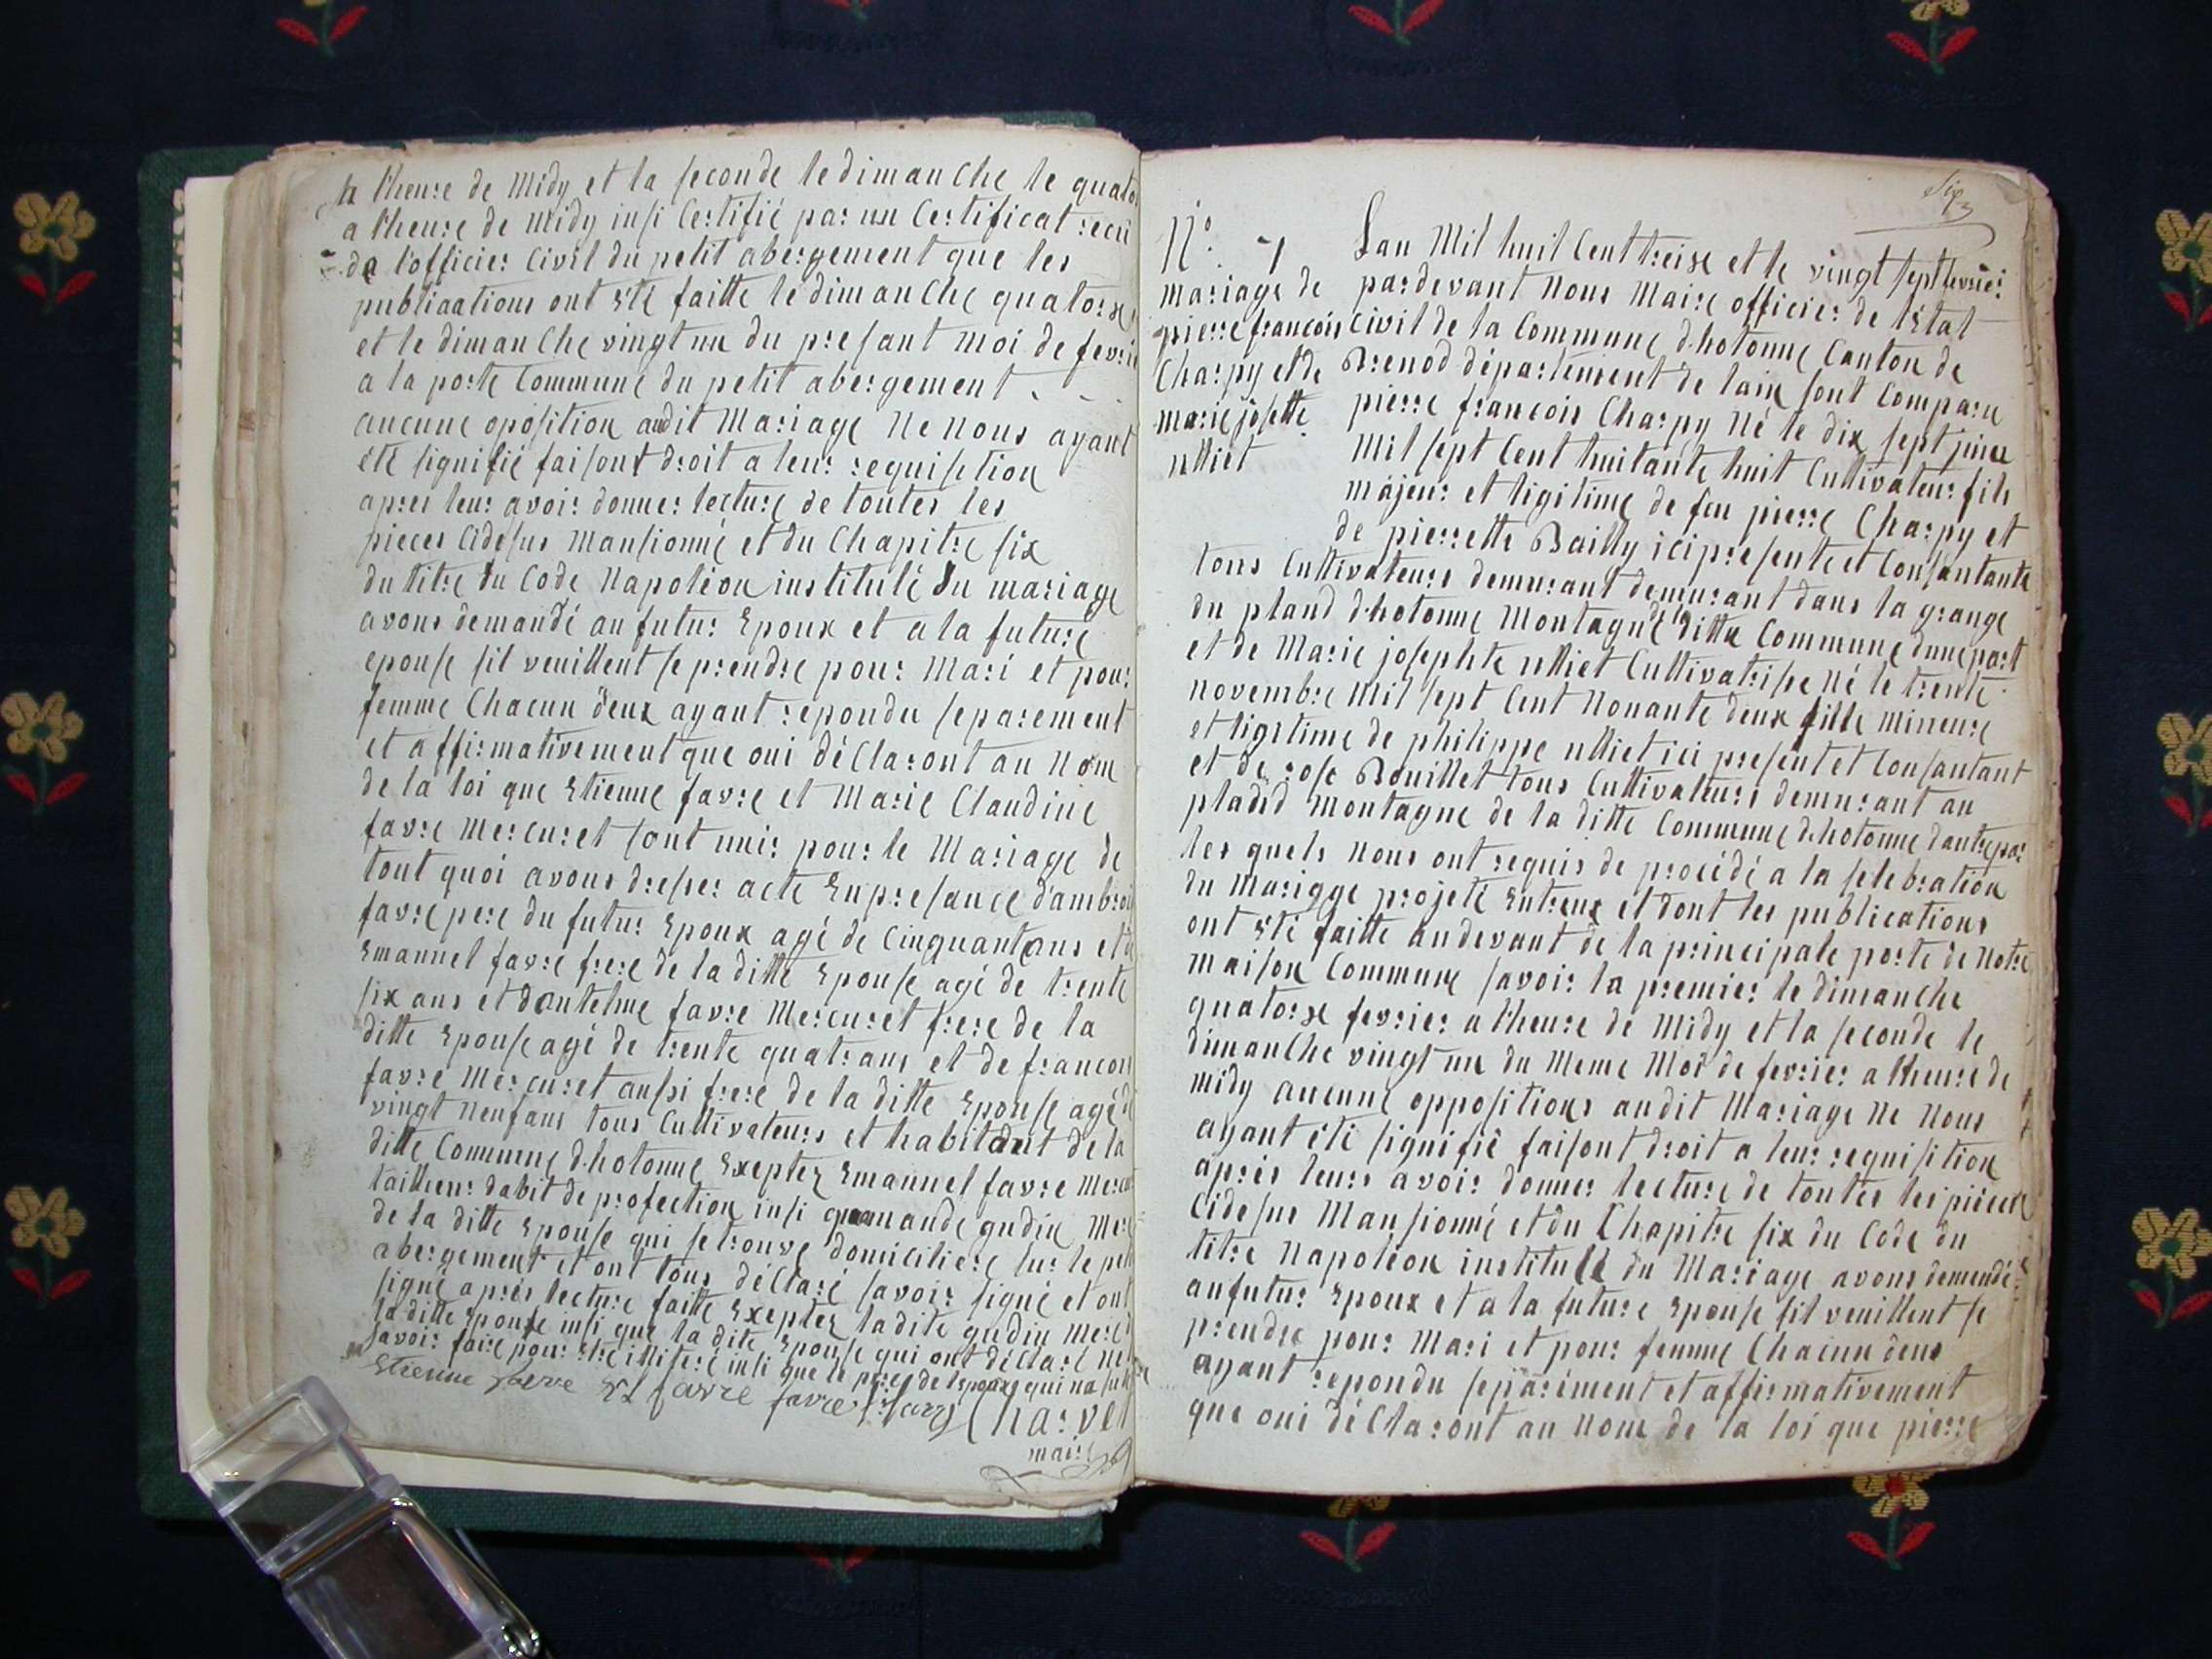 l'heure de midy et la seconde le dimanche le
a l'heure de midy insi Certifié par un Certificat
de l'officier Civil du petit abergement que les
publications ont été faitte le dimanche quatorze
et le dimanche vingt un du presant moi de
a la porte Commune du petit abergement
aucune oposition audit Mariage Ne Nous ayant
été signifié faisont droit a leur requisition
apres leur avoir donner lecture de toutes les
pieces Cidesus Mansionné et du Chapitre six
du titre du Code Napoléon institulé du mariage
avons demandé au futur Epoux et a la future
epouse sil veuillent se prendre pour Mari et pour
femme Chacun deux ayant repondu separement
et affirmativement que oui déClaront au Nom
de la loi que Etienne favre et Marie Claudine
favre Mercuret sont unis pour le Mariage de
tout quoi avons dreser acte En presance
favre pere du futur Epoux agé de Cinquant ans
Emanuel favre frere de la ditte Epouse agé de trente
six ans et dantelme favre Mercuret frere de la
ditte Epouse agé de trente quatrans et de francois
favre Mercuret aussi frere de la ditte Epouse agé
vingt Neuf ans tous Cultivateurs et habitant de la
ditte Commune d.hotonne Exeptez Emanuel favre
tailleur dabit de profection insi gudin
de la ditte Epouse qui se trouve domiciliere sur le
abergement et ont tous déClaré savoir signé et ont
signé aprés lecture faitte Exeptez ladite gudin
la ditte Epouse insi que la dite Epouse qui ont déClaré ne
savoir faire pour etre illiteré insi que le pere de Epoux
Etienne favre favre favre Charvet
maire
Six
N.º 7
mariage de
pierre francois
Charpy et de
marie josette
ulliet
Lan Mil huit Cent treize et le vingt sept fevrier
pardevant Nous Maire officier de l'Etat
Civil de la Commune d.hotonne Canton de
Brenod département de lain sont Comparu
pierre francois Charpy Né le dix sept
Mil sept Cent huitante huit Cultivateur fils
majeur et ligitime de feu pierre Charpy et
de pierrette Bailly ici presente et Consantante
tous Cultivateurs demurant demurant dans la grange
du pland d.hotonne Montagne ditte Commune dune part
et de Marie josephte ulliet Cultivatrise Né le trente
novembre Mil sept Cent Nonante deux fille mineure
et ligitime de philippe ulliet ici present et Consantant
et de rose Bouillet tous Cultivateurs demurant au
pland Montagne de la ditte Commune d.hotonne dautre par
les quels Nous ont requis de procédé a la selebration
du Mariage projeté Entreux et dont les publications
ont été faitte audevant de la principale porte de Notre
Maison Commune savoir la premier le dimanche
quatorze fevrier a l'heure de Midy et la seconde le
dimanche vingt un du Meme Moi de fevrier a l'heure de
midy aucune oppositions audit Mariage Ne Nous
ayant été signifié faisont droit a leur requisition
aprés leurs avoir donner lecture de toutes les pieces
Cidesus Mansionné et du Chapitre six du Code du
titre Napoléon institulé du Mariage avons demendé
au futur Epoux et a la future Epouse sil veuillent se
prendre pour Mari et pour femme Chacun deus
ayant repondu separément et affirmativement
que oui déClaront au Nom de la loi que pierre